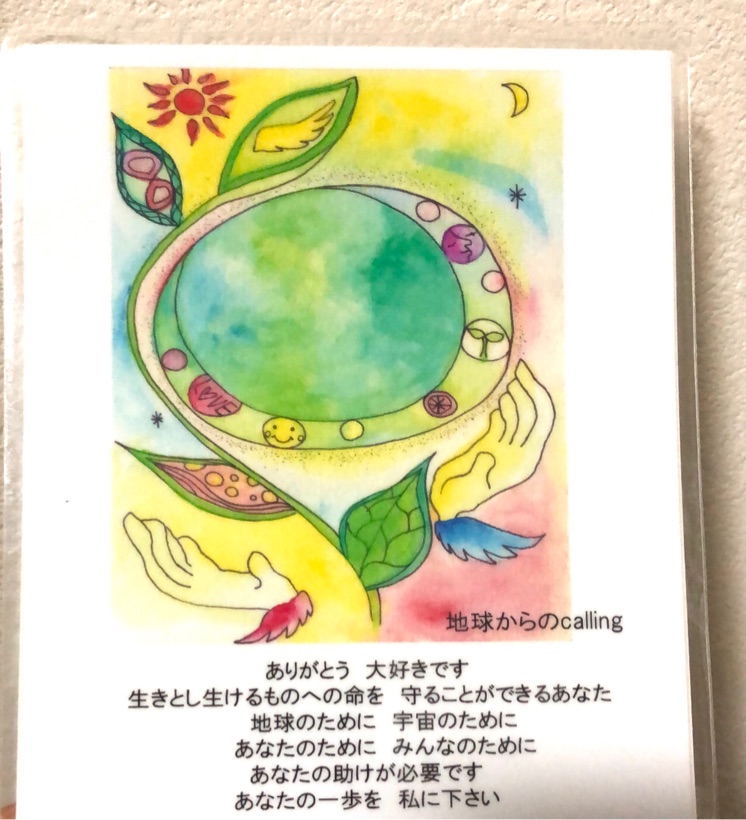 LOVE
地球からのcalling
ありがとう　大好きです
生きとし生けるものへの命を　守ることができるあなた
地球のために　宇宙のために
あなたのために　みんなのために
あなたの助けが必要です
あなたの一歩を　私に下さい